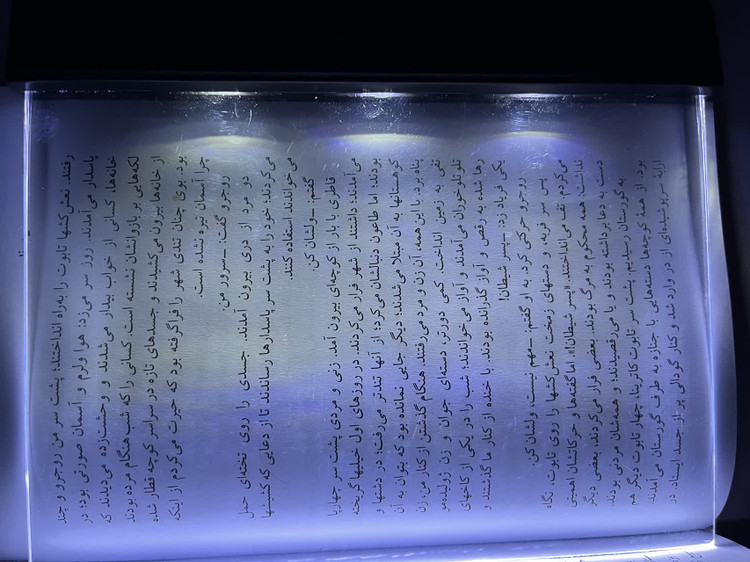 رفتند. نعش‌کشها تابوت را به‌راه انداختند؛ پشت سر من روبجرو و چند
پاسدار می‌آمدند. روز سر می‌زد؛ هوا ولرم و آسمان صورتی بود؛ در
خانه‌ها، کسانی از خواب بیدار می‌شدند و وحشت‌زده می‌دیدند که
لکه‌هایی بر بازوانشان نشسته است. کسانی را که شب هنگام مرده بودند
از خانه‌ها بیرون می‌کشیدند و جسدهای تازه در سراسر کوچه قطار شده
بود. بوی چنان تندی شهر را فراگرفته بود که حیرت می‌کردم از اینکه
چرا آسمان تیره نشده است.
روبجرو گفت: ــ سرور من.
دو مرد از دری بیرون آمدند. جسدی را روی تخته‌ای حمل
می‌کردند؛ خود را به پشت سر پاسدارها رساندند تا از دعایی که کشیشها
می‌خواندند استفاده کنند.
گفتم: ــ ولشان کن.
قاطری با بار از کوچه‌ای بیرون آمد. زنی و مردی پشت سر چهارپا
می‌آمدند؛ داشتند از شهر فرار می‌کردند. در روزهای اول خیلیها گریخته
بودند؛ اما طاعون دنبالشان می‌کرد؛ از آنها تندتر می‌رفت؛ در دشتها و
کوهستانها به آن مبتلا می‌شدند؛ دیگر جایی نمانده بود که بتوان به آن
پناه برد. با این همه، آن زن و مرد می‌رفتند. هنگام گذشتن از کنار من، زن
تفی به زمین انداخت. کمی دورتر، دسته‌ای جوان و زن ژولیده‌مو
تلوتلوخوران می‌آمدند و آواز می‌خواندند؛ شب را در یکی از کاخهای
رها شده به رقص و آواز گذرانده بودند. با خنده از کنار ما گذشتند و
یکی فریاد زد: ــ پسر شیطان!
روبجرو حرکتی کرد. به او گفتم: ــ مهم نیست. ولشان کن.
پس سر فربه و دستهای زمخت نعش‌کشها را روی تابوت، نگاه
می‌کردم. تف می‌انداختند. «پسر شیطان!». اما گفته‌ها و حرکاتشان اهمیتی
نداشت؛ همه محکوم به مرگ بودند. بعضی فرار می‌کردند، بعضی دیگر
دست به دعا برداشته بودند و یا می‌رقصیدند؛ و همه‌شان مردنی بودند.
به گورستان رسیدیم. پشت سر تابوت کاترینا، چهار تابوت دیگر هم
بود. از همهٔ کوچه‌ها دسته‌هایی با جنازه به طرف گورستان می‌آمدند.
ارابه سرپوشیده‌ای از در وارد شد و کنار گودالی پر از جسد ایستاد. در